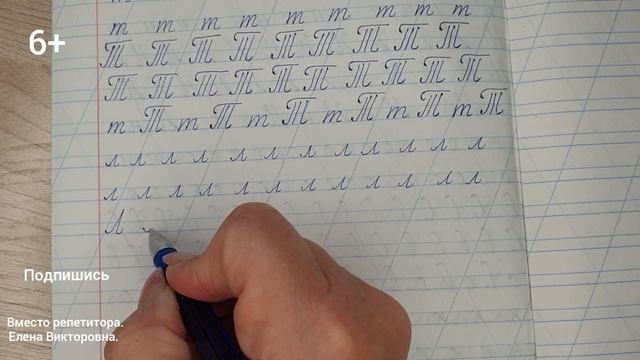 6+
т т т т т т т т т
Т Т Т Т Т Т Т Т Т
Т Т Т Т Т Т Т Т Т Т
т Т т Т т Т т Т т Т т Т
л л л л л л л л л л л л
л л л л л л л л л л л л
Л
Подпишись
Вместо репетитора.
Елена Викторовна.